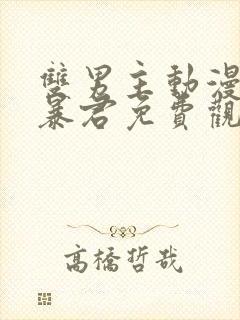 雙男主動漫
暴君免費觀
高橋哲哉